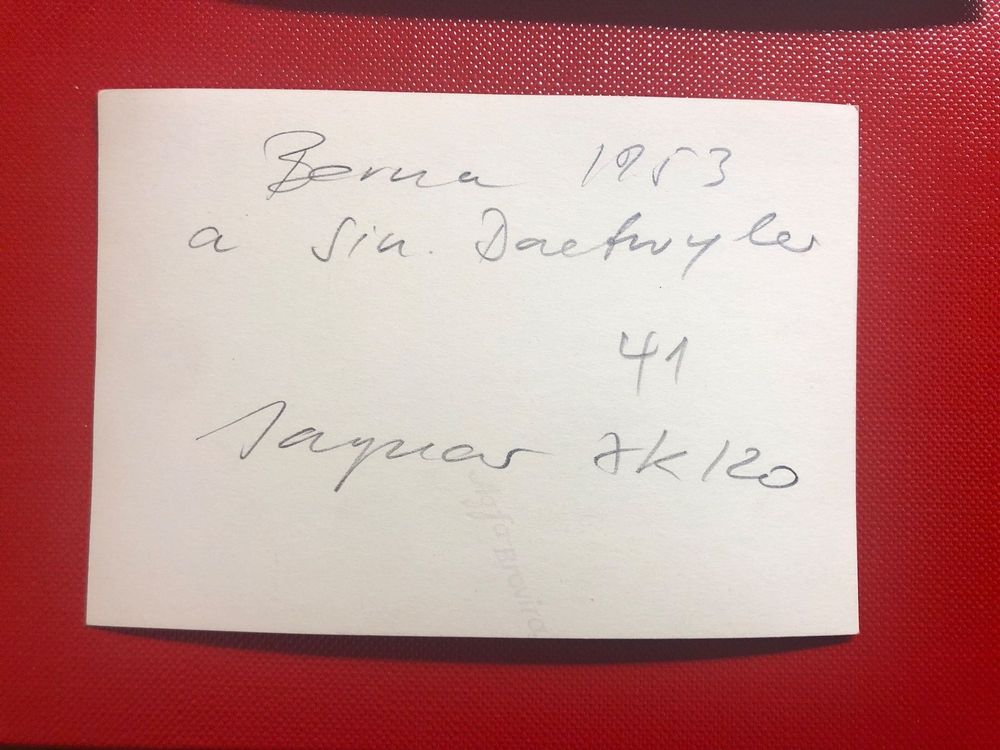 Berna 1953
a sin. Daetwyler
41
Jaguar XK 120
Agfa Brovira